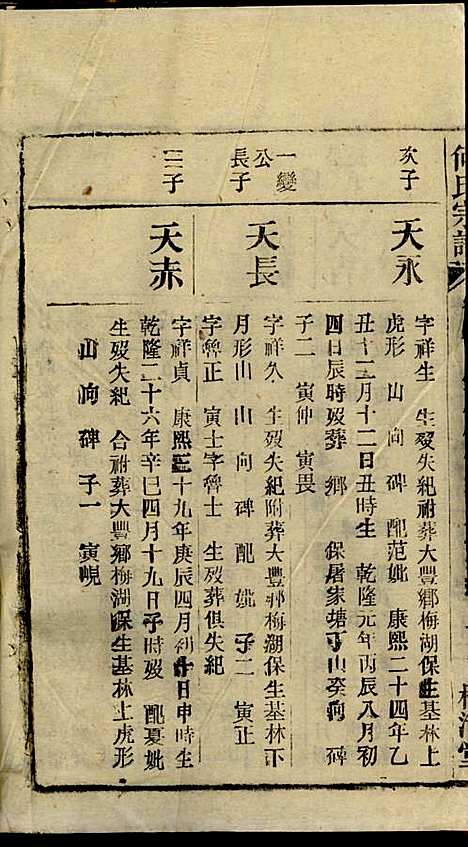 氏宗譜
次子
天永
字祥生 生歿失紀祔葬大豐鄉梅湖保生基林上
虎形 山 向 碑 配范妣 康熙二十四年乙
丑十二月十二日丑時生 乾隆元年丙辰八月初
四日辰時歿葬 鄉 保屠家塘丁山癸向 碑
子二 寅仲 寅畏
一變公長子
天長
字祥久 生歿失紀附葬大豐鄉梅湖保生基林下
月形山 山 向 碑 配 妣 子二 寅正
字魯正 寅士字魯士 生歿葬俱失紀
三子
天赤
字祥貞 康熙三十九年庚辰四月初十日申時生
乾隆二十六年辛巳四月十九日子時歿 配夏妣
生歿失紀 合祔葬大豐鄉梅湖保生基林上虎形
山 向 碑 子一 寅峴